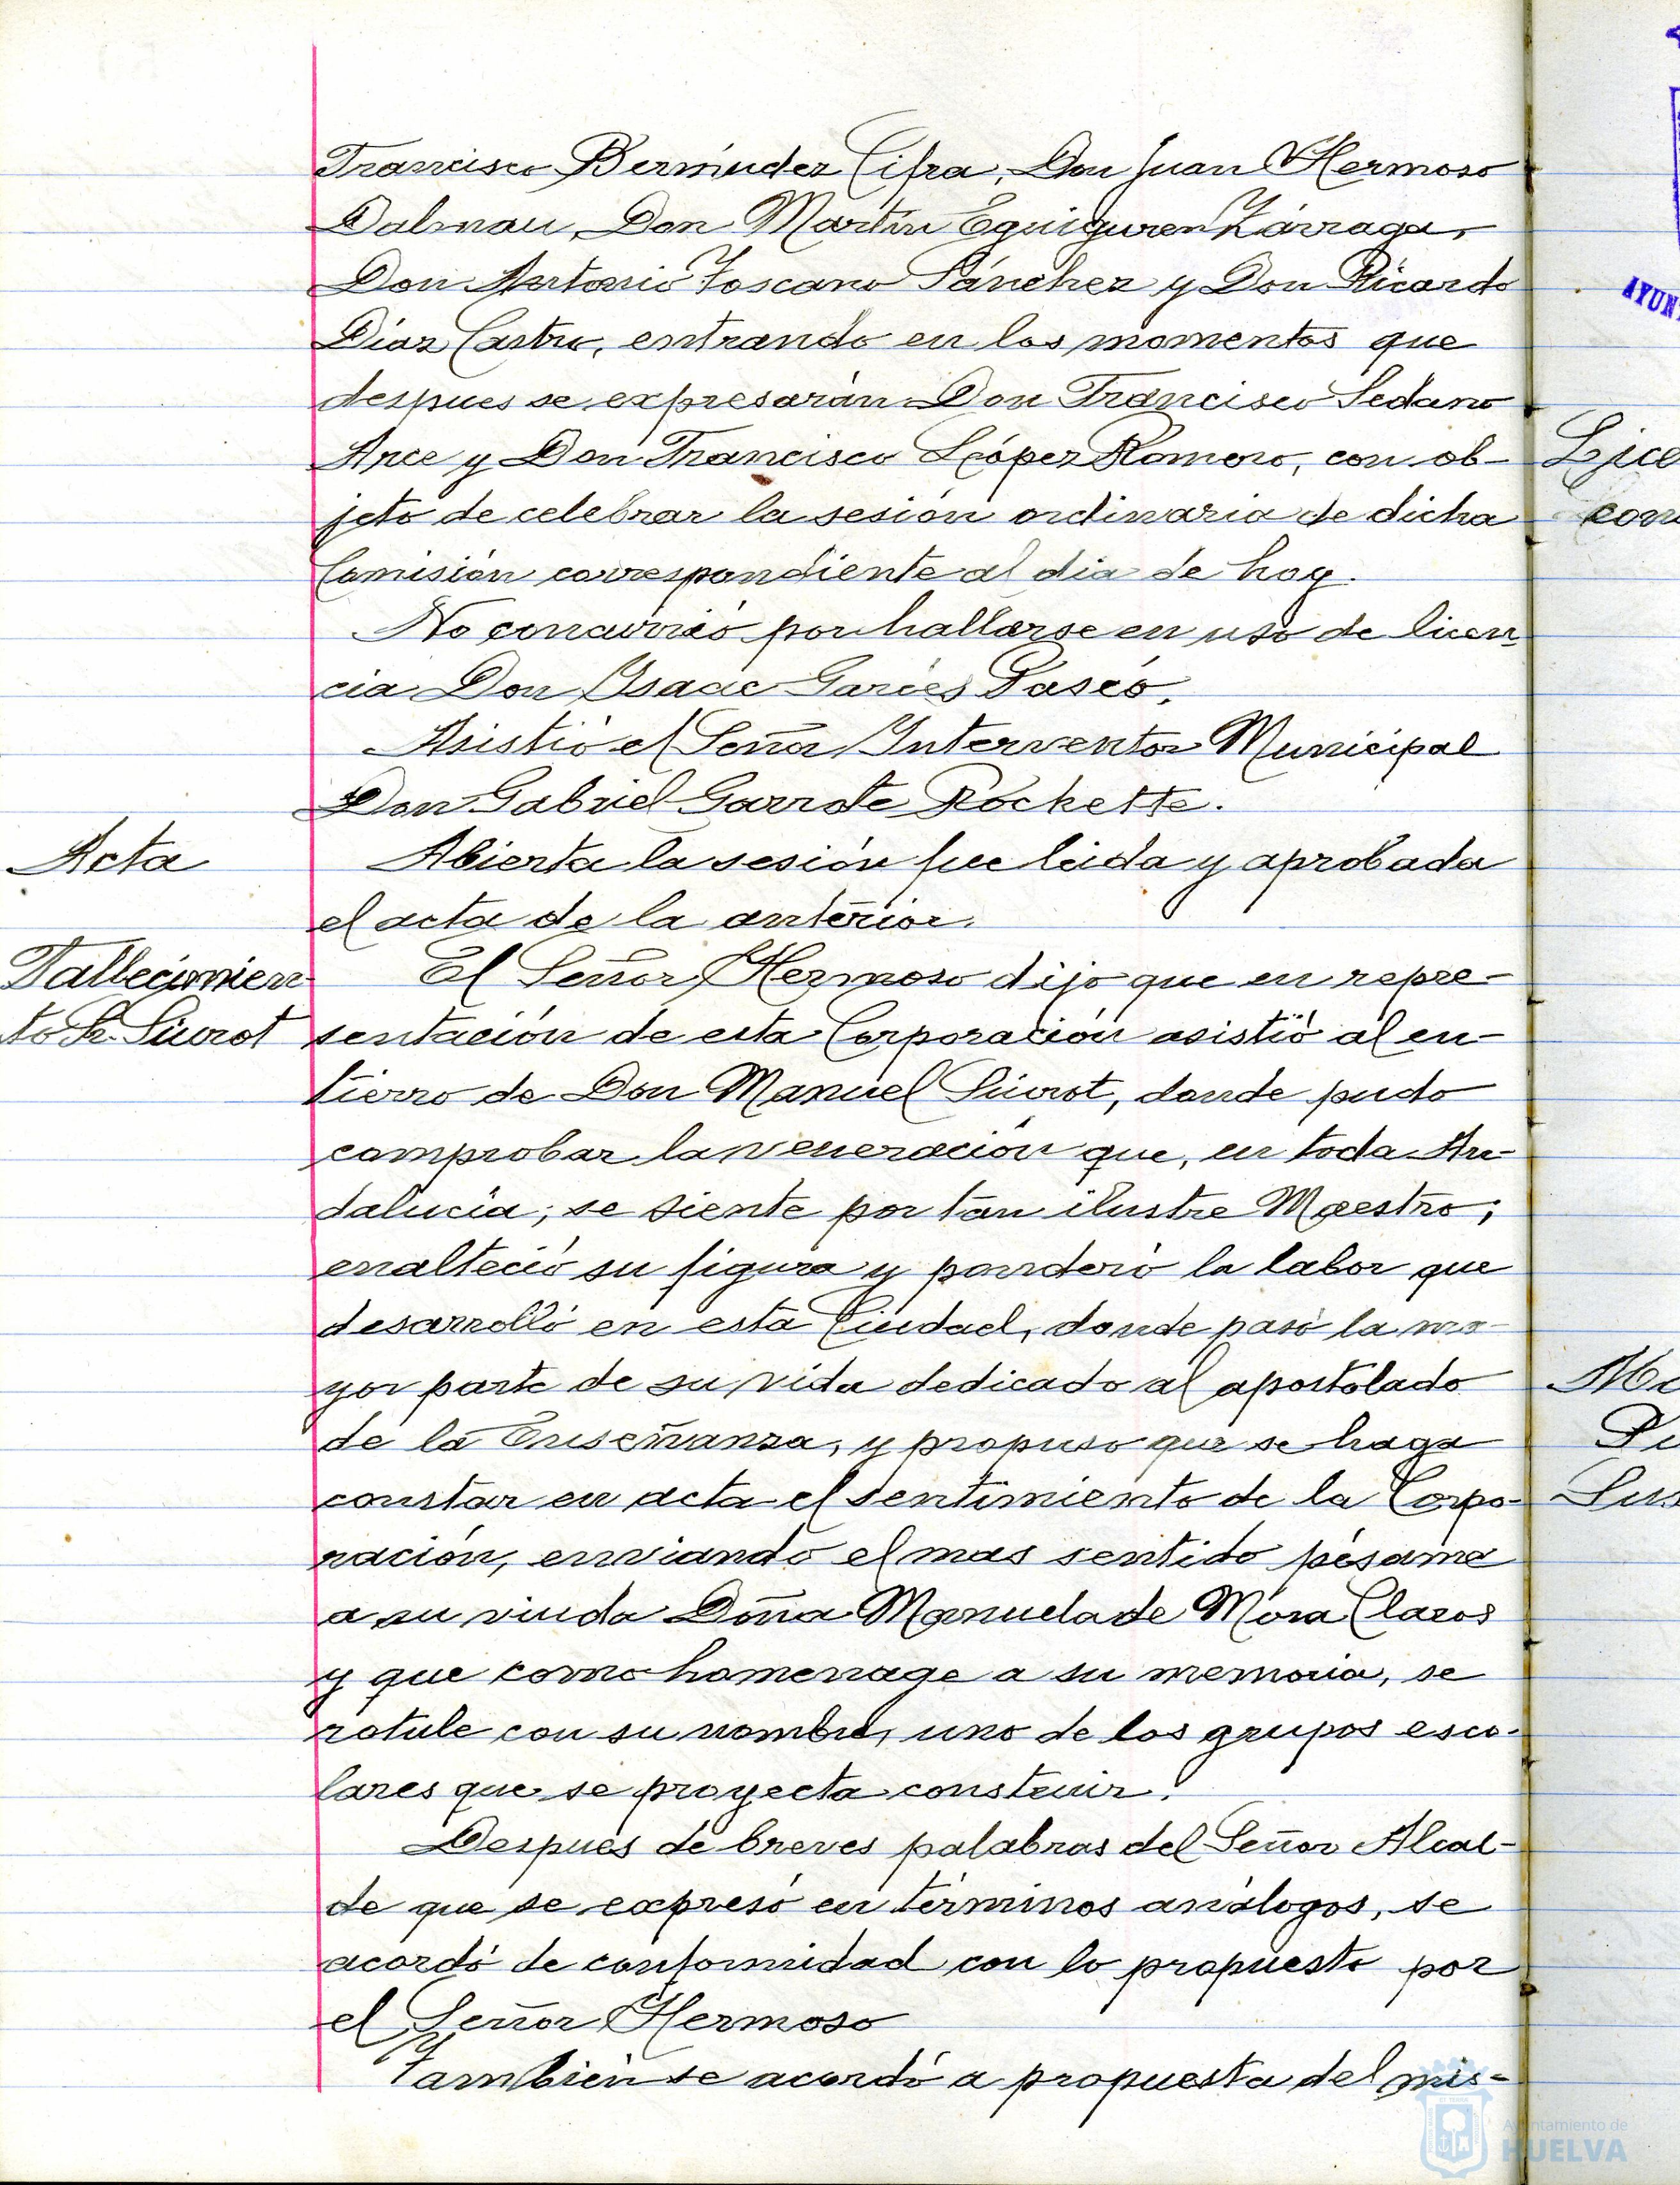 Francisco Bermúdez Cifra, Don Juan Hermoso
Dalmau, Don Martín Eguiguren Zárraga,
Don Antonio Toscano Sánchez y Don Ricardo
Díaz Castro, entrando en los momentos que
despues se expresarán Don Francisco Sedano
Arce y Don Francisco López Romero, con ob-
jeto de celebrar la sesión ordinaria de dicha
Comisión correspondiente al dia de hoy.
No concurrió por hallarse en uso de licen-
cia Don Isaac Garcés Paseo.
Asistió el Señor Interventor Municipal
Don Gabriel Garrote Rockette.
Acta
Abierta la sesión fue leida y aprobada
el acta de la anterior.
Fallecimien-
to Sr. Siurot
El Señor Hermoso dijo que en repre-
sentación de esta Corporación asistió al en-
tierro de Don Manuel Siurot, donde pudo
comprobar la veneración que, en toda An-
dalucía; se siente por tan ilustre Maestro;
enalteció su figura y ponderó la labor que
desarrolló en esta Ciudad, donde pasó la ma-
yor parte de su vida dedicado al apostolado
de la Enseñanza, y propuso que se haga
constar en acta el sentimiento de la Corpo-
ración, enviando el mas sentido pésame
a su viuda Doña Manuela de Mora Claros
y que como homenage a su memoria, se
rotule con su nombre, uno de los grupos esco-
lares que se proyecta construir.
Después de breves palabras del Señor Alcal-
de que se expresó en términos análogos, se
acordó de conformidad con lo propuesto por
el Señor Hermoso
También se acordó a propuesta del mis-
AYUN
Lice
con
Pe
Ayuntamiento de
HUELVA